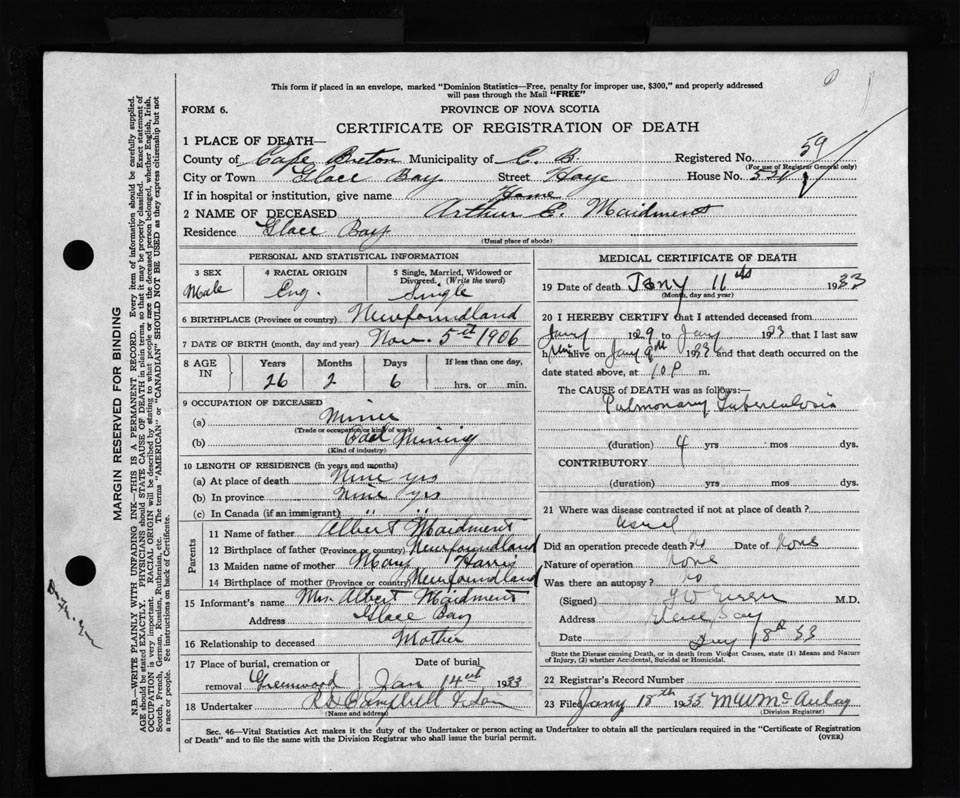 This form if placed in an envelope, marked "Dominion Statistics—Free, penalty for improper use, $300," and properly addressed
will pass through the Mail "FREE"
FORM 6.
PROVINCE OF NOVA SCOTIA
CERTIFICATE OF REGISTRATION OF DEATH
1 PLACE OF DEATH—
County of Cape Breton Municipality of C. B. Registered No. 59
(For use of Registrar General only)
City or Town Glace Bay Street Haye House No.
If in hospital or institution, give name Home
2 NAME OF DECEASED Arthur C. Maidment
Residence Glace Bay
(Usual place of abode)
PERSONAL AND STATISTICAL INFORMATION
3 SEX Male
4 RACIAL ORIGIN Eng.
5 Single, Married, Widowed or Divorced. (Write the word) Single
6 BIRTHPLACE (Province or country) Newfoundland
7 DATE OF BIRTH (month, day and year) Nov. 5th 1906
8 AGE IN
Years Months Days If less than one day,
26 2 6 hrs. or min.
9 OCCUPATION OF DECEASED
(a) Miner
(Trade or occupation or kind of work)
(b) Coal Mining
(Kind of industry)
10 LENGTH OF RESIDENCE (in years and months)
(a) At place of death Nine yrs
(b) In province Nine yrs
(c) In Canada (if an immigrant) " "
Parents
11 Name of father Albert Maidment
12 Birthplace of father (Province or country) Newfoundland
13 Maiden name of mother Mary Harris
14 Birthplace of mother (Province or country) Newfoundland
15 Informant's name Mrs. Albert Maidment
Address Glace Bay
16 Relationship to deceased Mother
17 Place of burial, cremation or removal Greenwood
Date of burial Jan 14th 1933
18 Undertaker Campbell & Son
(Name and address)
MEDICAL CERTIFICATE OF DEATH
19 Date of death Jany 11th 1933
(Month, day and year)
20 I HEREBY CERTIFY that I attended deceased from
Jany 1929 to Jany 1933 that I last saw
him alive on Jany 9th 1933 and that death occurred on the
date stated above, at 10 P m.
The CAUSE OF DEATH was as follows:—
Pulmonary Tuberculosis
(duration) 4 yrs mos dys.
CONTRIBUTORY
(duration) yrs mos dys.
21 Where was disease contracted if not at place of death?
Did an operation precede death? no Date of None
Nature of operation None
Was there an autopsy? no
(Signed) M.D.
Address Glace Bay
Date 18th 33
State the Disease causing Death, or in death from Violent Causes, state (1) Means and Nature
of Injury, (2) whether Accidental, Suicidal or Homicidal.
22 Registrar's Record Number
23 Filed Jany 18th 1933 M W McAuley
(Division Registrar)
Sec. 46—Vital Statistics Act makes it the duty of the Undertaker or person acting as Undertaker to obtain all the particulars required in the "Certificate of Registration
of Death" and to file the same with the Division Registrar who shall issue the burial permit. (OVER)
MARGIN RESERVED FOR BINDING
N.B.—WRITE PLAINLY WITH UNFADING INK—THIS IS A PERMANENT RECORD. Every item of information should be carefully supplied.
AGE should be stated EXACTLY. PHYSICIANS should STATE CAUSE OF DEATH in plain terms, so that it may be properly classified. Exact statement of
OCCUPATION is very important. RACIAL ORIGIN will be described by stating to what people or race the deceased person belonged, whether English, Irish,
Scotch, French, German, Russian, Ruthenian, etc. The terms "AMERICAN" or "CANADIAN" SHOULD NOT BE USED as they express citizenship but not
a race or people. See instructions on back of Certificate.